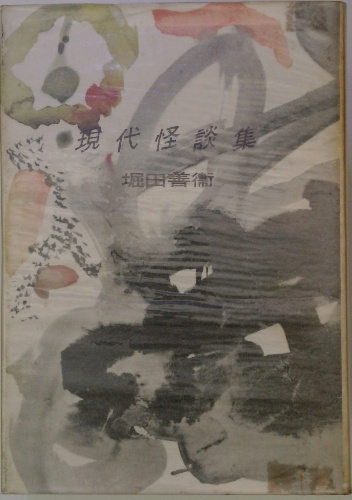 現代怪談集
堀田善衞